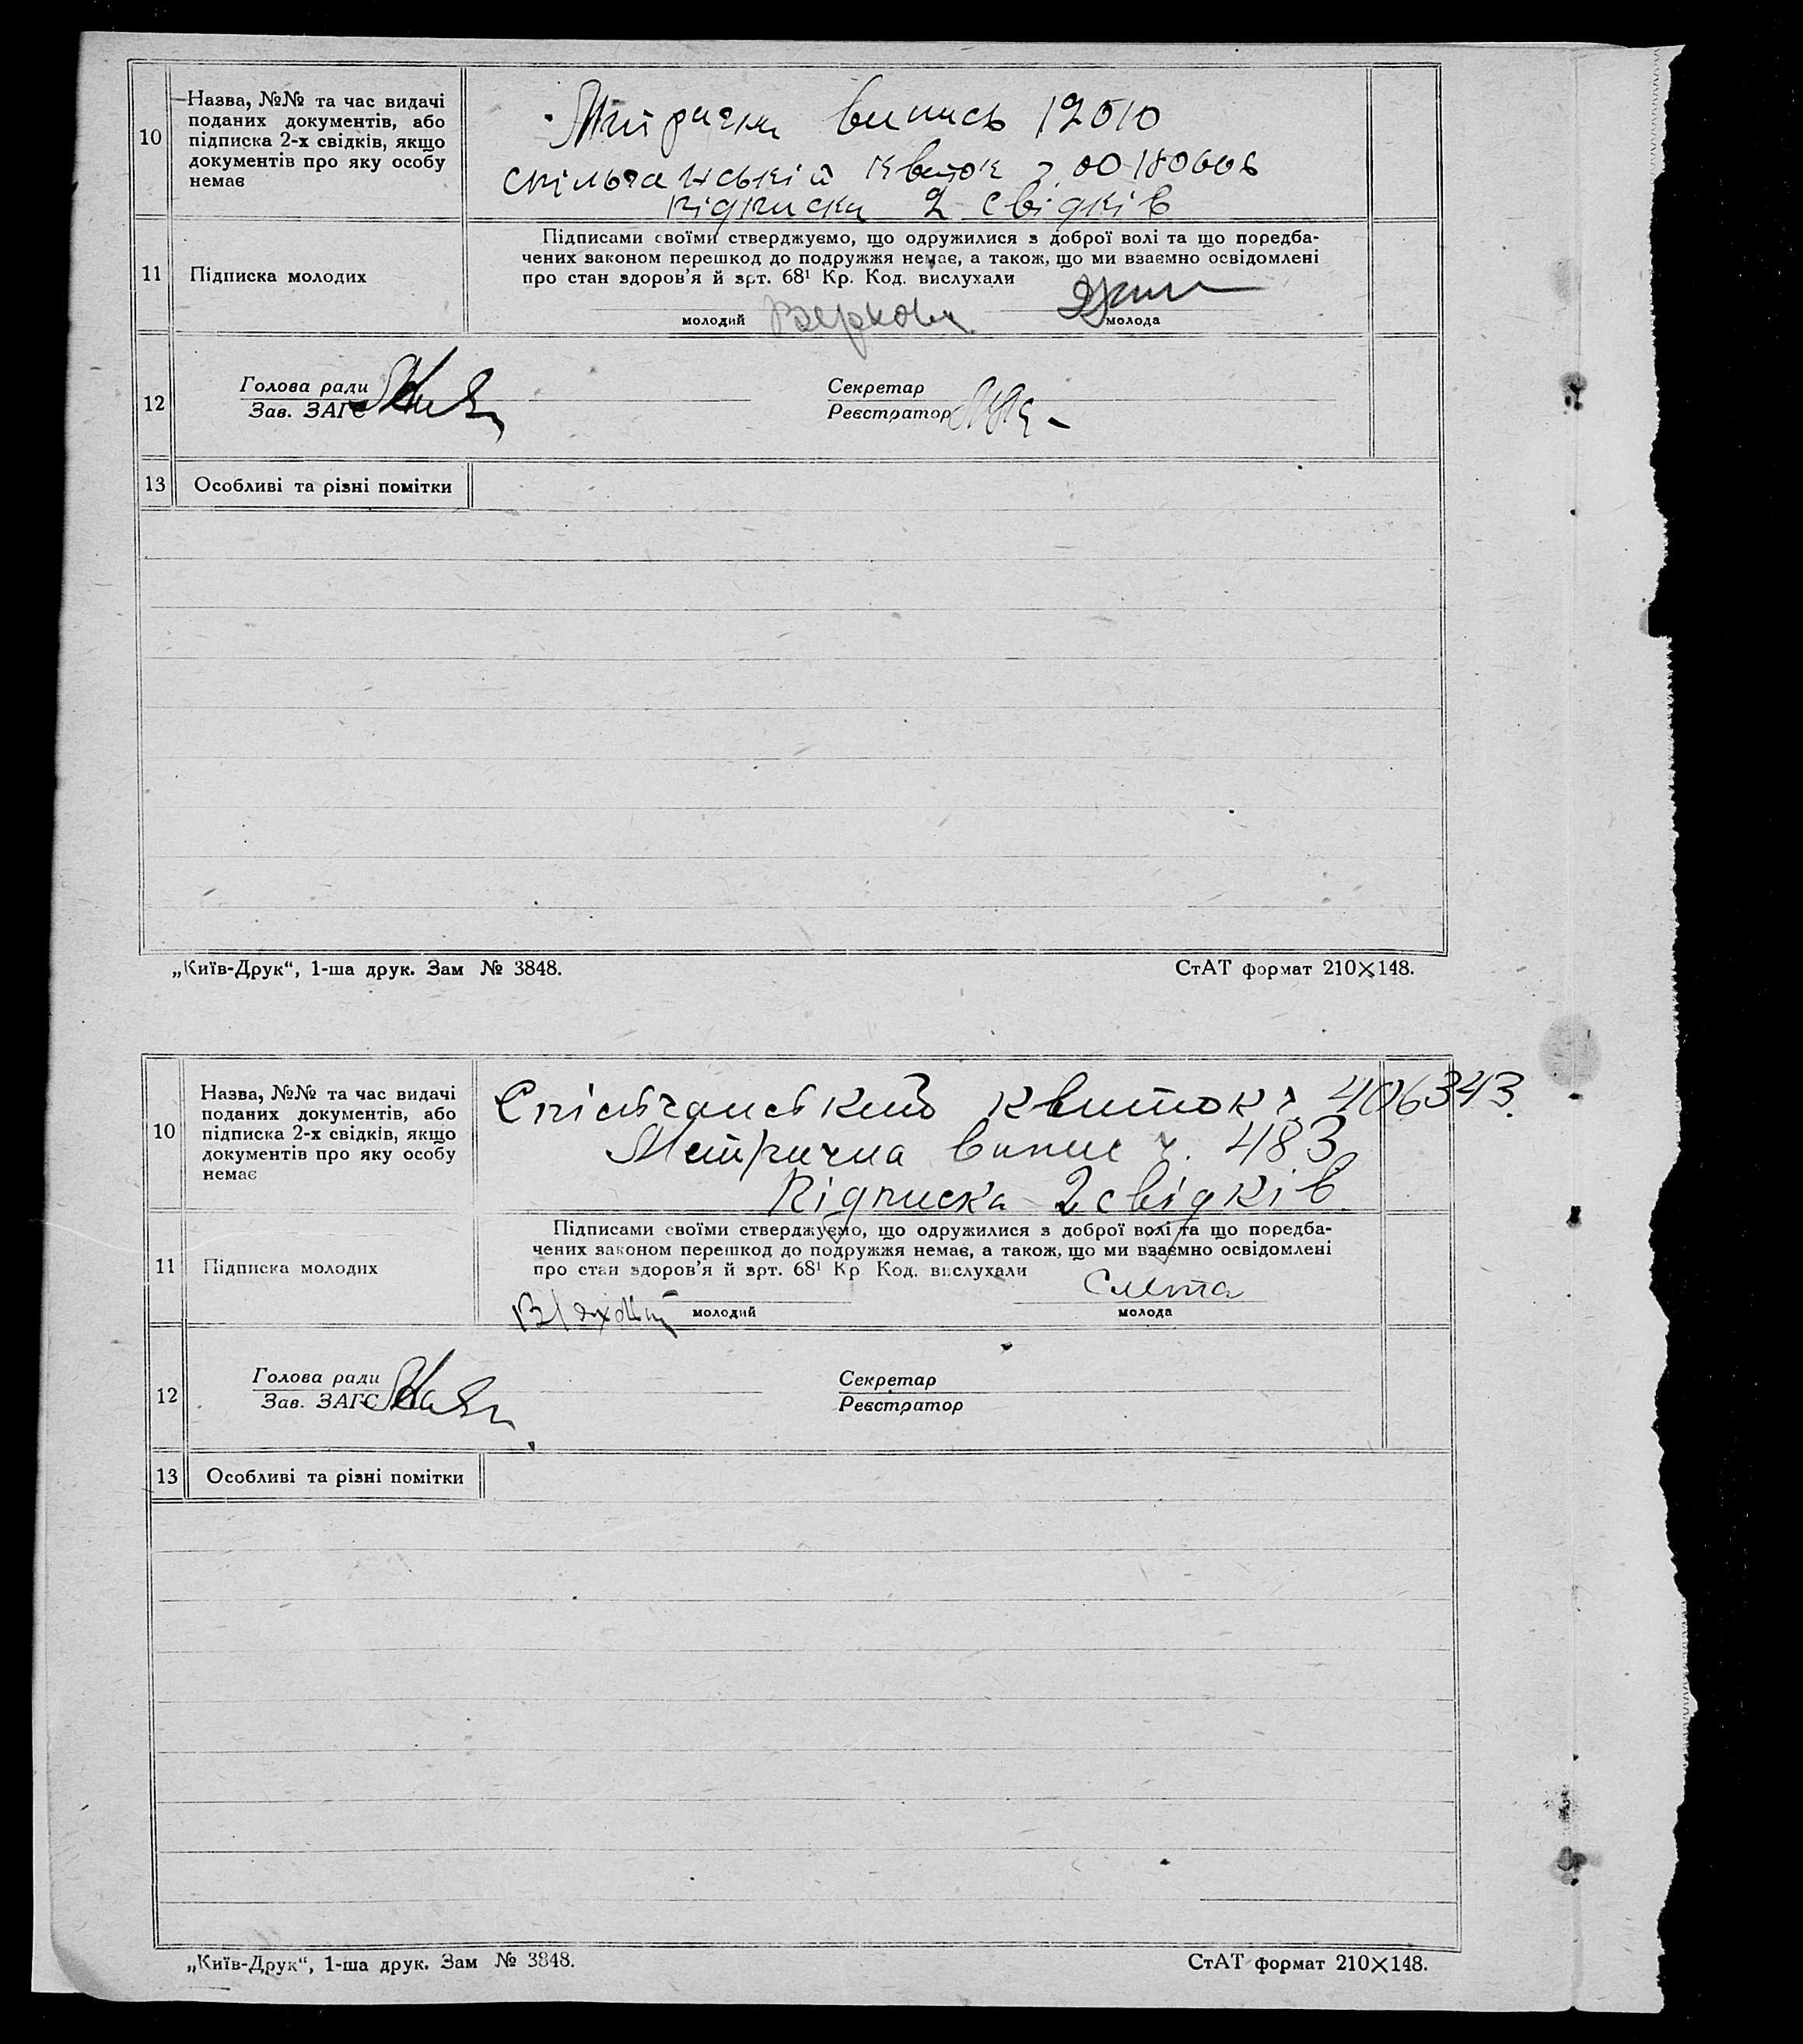 10
Назва, №№ та час видачі
поданих документів, або
підписка 2-х свідків, якщо
документів про яку особу
немає
випись 12010
квиток
підписка 2 свідків
11
Підписка молодих
Підписами своїми стверджуємо, що одружилися з доброї волі та що поредба-
чених законом перешкод до подружжя немає, а також, що ми взаємно освідомлені
про стан здоров'я й зрт. 68¹ Кр. Код. вислухали
молодий
молода
12
Голова ради
Зав. ЗАГС
Секретар
Реєстратор
13
Особливі та різні помітки
„Київ-Друк“, 1-ша друк. Зам № 3848.
СтАТ формат 210×148.
10
Назва, №№ та час видачі
поданих документів, або
підписка 2-х свідків, якщо
документів про яку особу
немає
квиток ч. 406343.
Метрична випис ч. 483
Підписка 2 свідків.
11
Підписка молодих
Підписами своїми стверджуємо, що одружилися з доброї волі та що поредба-
чених законом перешкод до подружжя немає, а також, що ми взаємно освідомлені
про стан здоров'я й зрт. 68¹ Кр Код. вислухали
молодий
молода
12
Голова ради
Зав. ЗАГС
Секретар
Реєстратор
13
Особливі та різні помітки
„Київ-Друк“, 1-ша друк. Зам № 3848.
СтАТ формат 210×148.